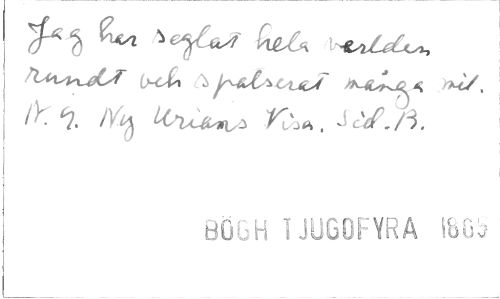 Jag har seglat hela världen
rundt och spatserat många mil.
N. 9. Ny Urians Visa. Sid. B.
BÖGH TJUGOFYRA 1865